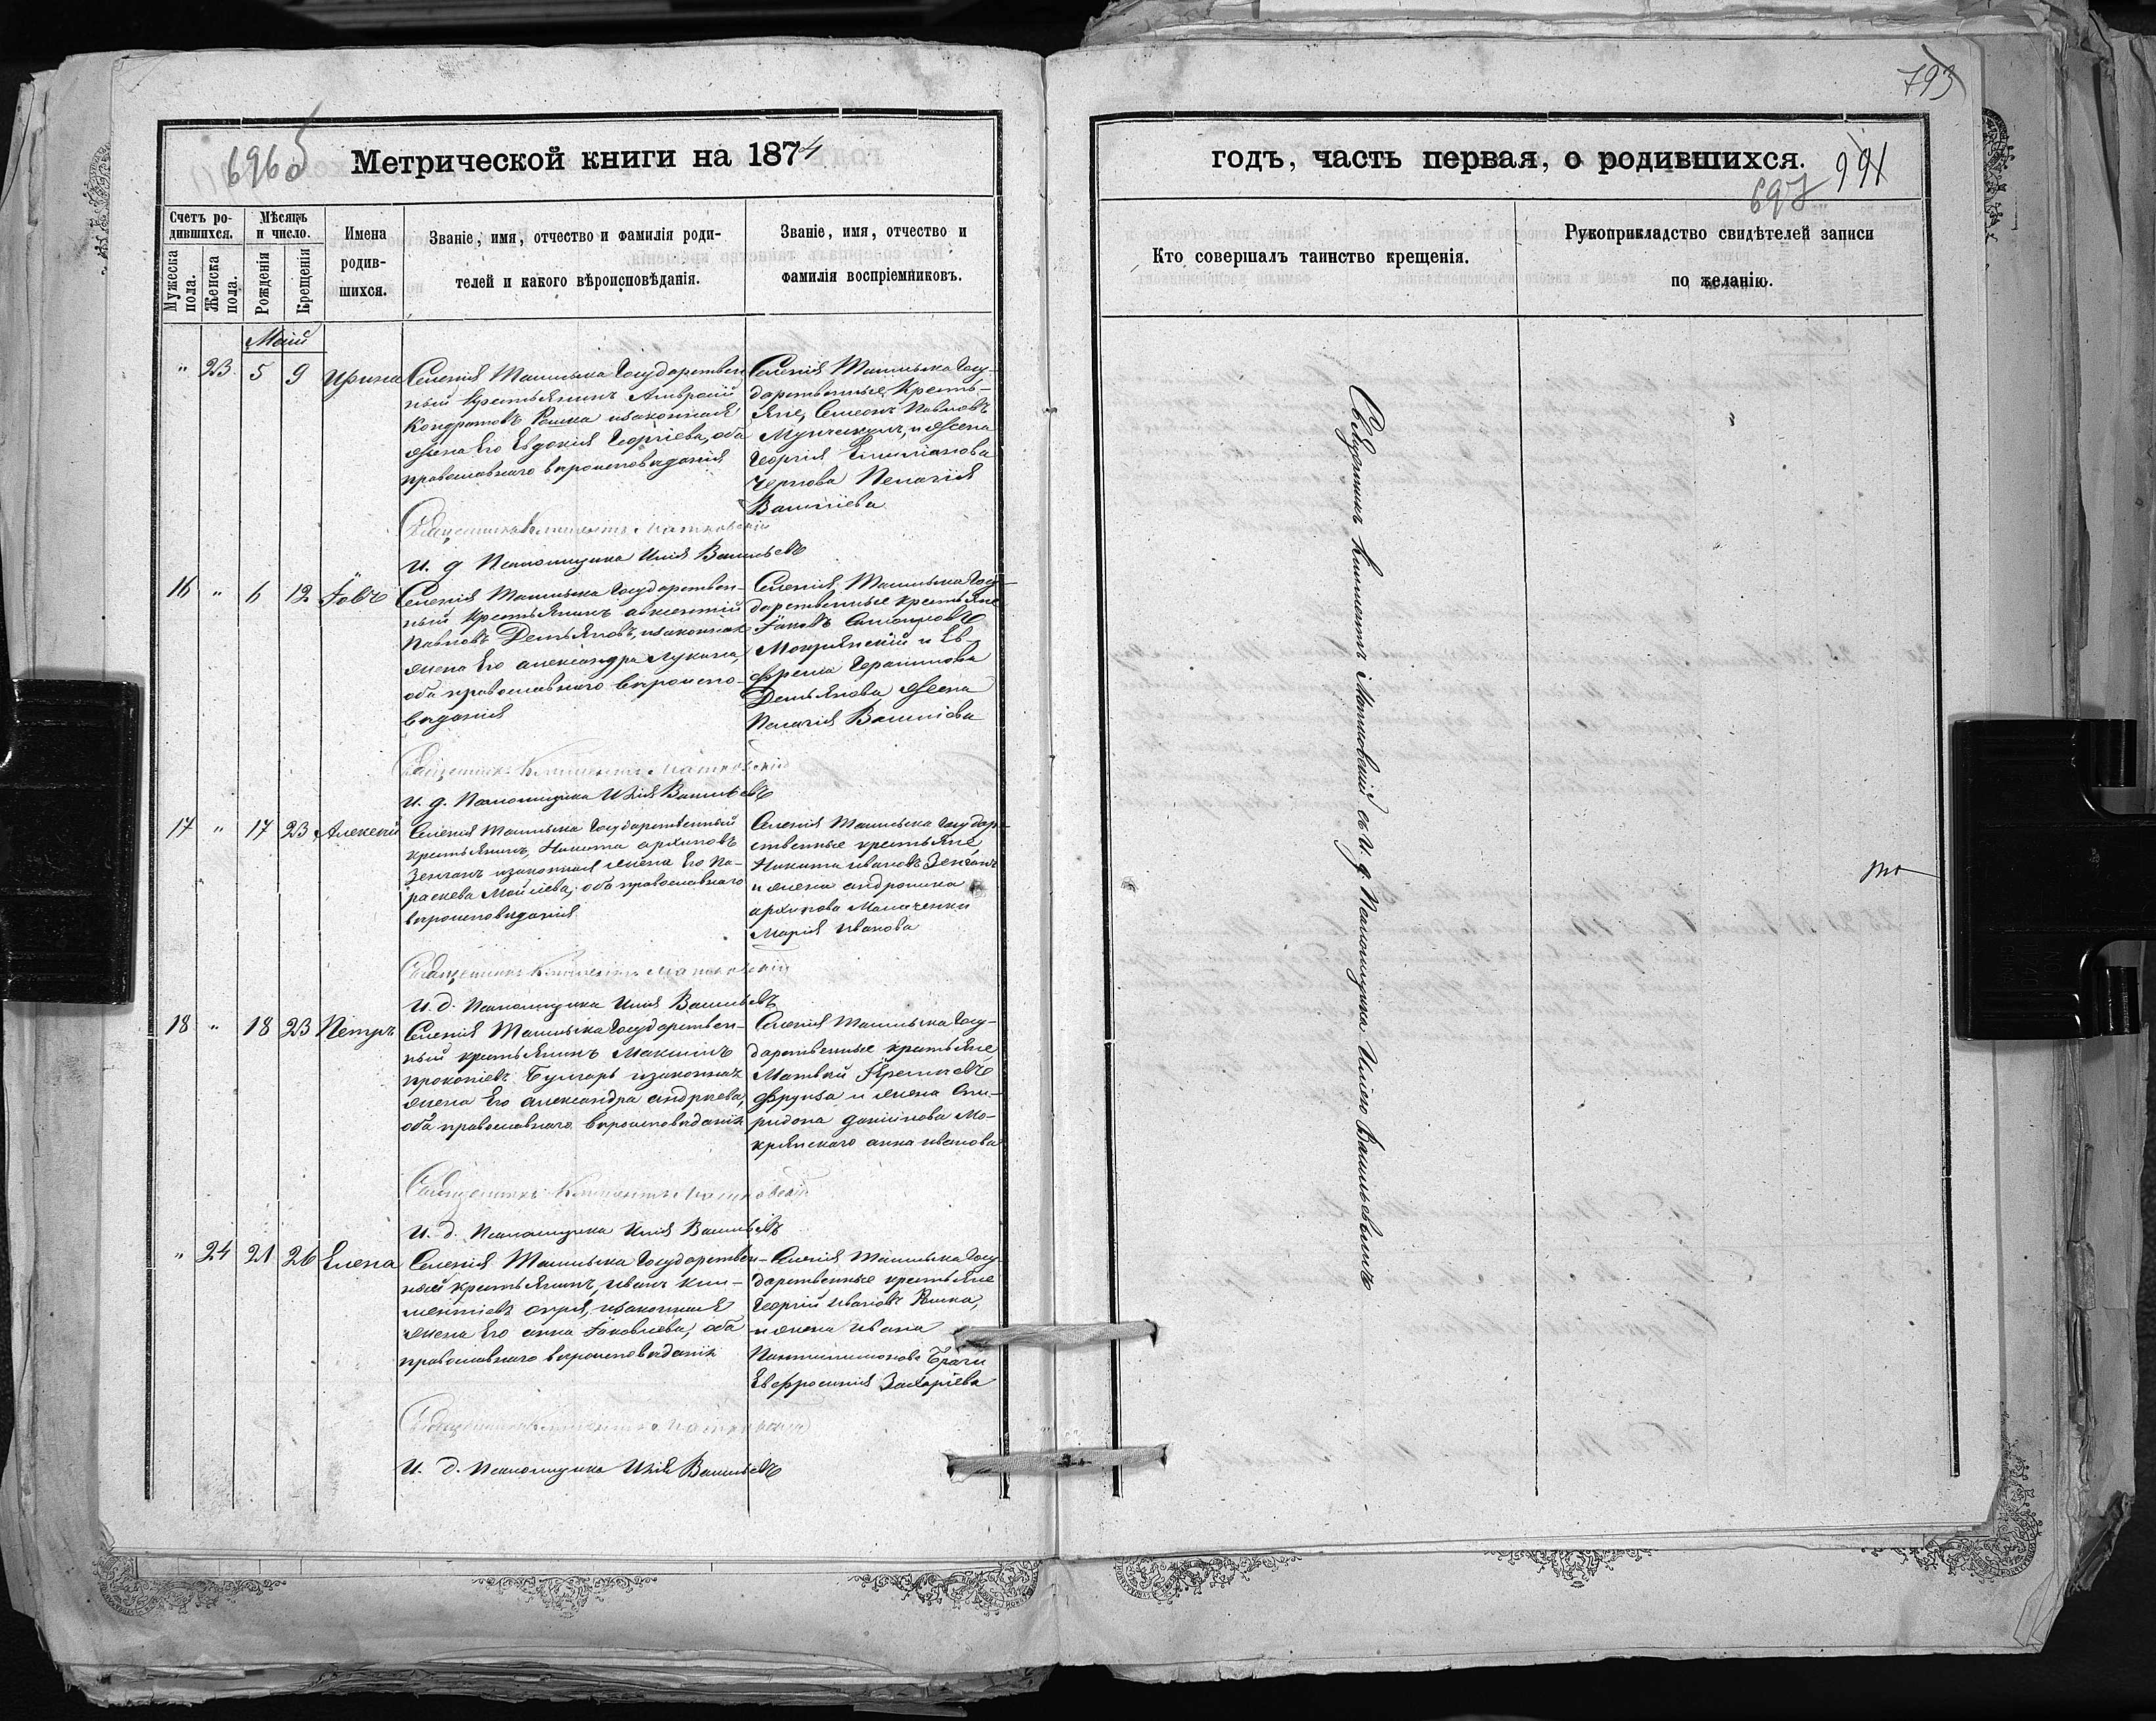 793
696 об
Метрической книги на 1874
годъ, часть первая, о родившихся.
991
697
Счетъ ро-
дившихся.
Мѣсяцъ
и число.
Мужеска
пола.
Женска
пола.
Рожденія
Крещенія
Имена
родив-
шихся.
Званіе, имя, отчество и фамилія роди-
телей и какого вѣроисповѣданія.
Званіе, имя, отчество и
фамилія воспріемниковъ.
Кто совершалъ таинство крещенія.
Рукоприкладство свидѣтелей записи
по желанію.
Маій
" 23 5 9 Ирина
Селенія Ташлыка Государствен
ный Крестьянинъ Амвросій
Кондратовъ Рошка изаконная
жена Его Евдокія Георгіева, оба
православнаго вѣроисповѣданія
Селенія Ташлыка Госу-
дарственные Кресть-
яне, Симеонъ Павловъ
и жена
Георгія
Чернова Пелагія
Василіева
Священникъ Климентъ Матковскій
И. д Псаломщика Илія Васильевъ
16 " 6 12 Іовъ
Селенія Ташлыка Государствен-
ный крестьянинъ авксентій
Павловъ Демьяновъ, изаконная
жена Его александра Лукина,
оба православнаго вѣроиспо-
вѣданія
Селенія Ташлыка Госу-
дарственные крестьяне
Іаковъ
Мокрянскій и Ев-
фрема Герасимова
Демьянова жена
Пелагія Василіова
Священникъ Климентъ Матковскій
И. д. Псаломщика Илія Васильевъ
17 " 17 23 Алексѣй
Селенія Ташлыка Государственный
крестьянинъ, Никита архиповъ
Зенганъ изаконная жена Его Па-
раскева Мойсіева, оба православнаго
вѣроисповѣданія
Селенія Ташлыка Государ-
ственные крестьяне,
Никита ивановъ Зенганъ
и жена андроника
архипова
Марія иванова
Священникъ Климентъ Матковскій
И. д. Псаломщика Илія Васильевъ
18 " 18 23 Петръ
Селенія Ташлыка Государствен-
ный крестьянинъ Максимъ
прокопіевъ Булгаръ изаконная
жена Его александра андреева,
оба православнаго вѣроисповѣданія
Селенія Ташлыка Госу-
дарственные крестьяне,
Матвѣй
Фрунза и жена Спи-
ридона даніилова Мо-
крянскаго анна иванова
Священникъ Климентъ Матковскій
И. д. Псаломщика Илія Васильевъ
" 24 21 26 Елена
Селенія Ташлыка Государствен-
ный крестьянинъ, иванъ Кли-
ментіевъ изаконная
жена Его анна Іаковлева, оба
православнаго вѣроисповѣданія
Селенія Ташлыка Госу-
дарственные крестьяне
Георгій ивановъ Рошка,
и жена ивана
Пантилимонова
Евфросинія Захаріева
Священникъ Климентъ Матковскій
И. д. Псаломщика Илія Васильевъ
Священникъ Климентъ Матковскій съ И. д. Псаломщика Иліею Васильевымъ